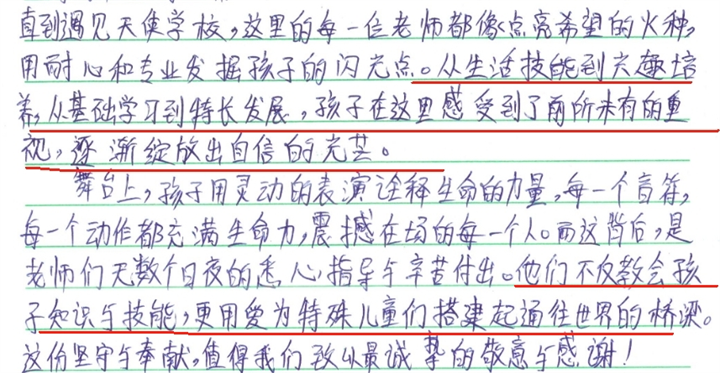 直到遇见天使学校,这里的每一位老师都像点亮希望的火种,
用耐心和专业发掘孩子的闪光点。从生活技能到兴趣培
养,从基础学习到特长发展,孩子在这里感受到了前所未有的重
视,逐渐绽放出自信的光芒。
舞台上,孩子用灵动的表演诠释生命的力量,每一个音符,
每一个动作都充满生命力,震撼在场的每一个人。而这背后,是
老师们无数个日夜的悉心指导与辛苦付出。他们不仅教会孩
子知识与技能,更用爱为特殊儿童们搭建起通往世界的桥梁。
这份坚守与奉献,值得我们致以最诚挚的敬意与感谢!